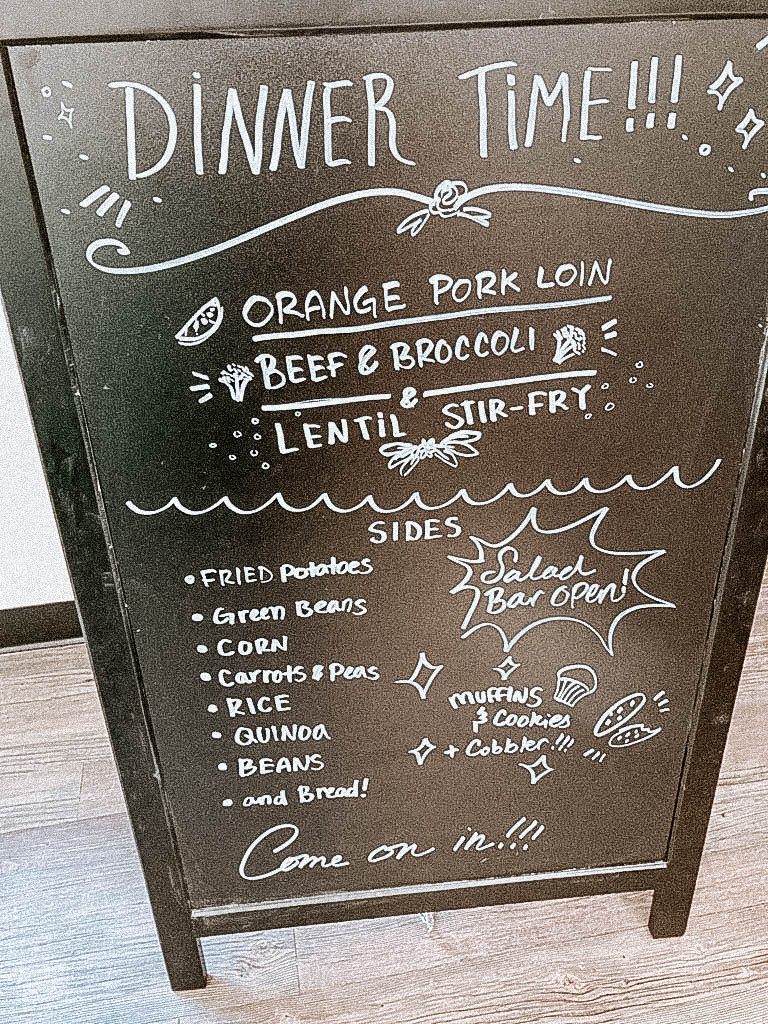 DiNNER TiME!!!
ORANGE PORK LOIN
BEEF & BROCCOLI
&
LENTiL STIR-FRY
SIDES
• FRIED Potatoes
• Green Beans
• CORN
• Carrots & Peas
• RICE
• QUINOa
• BEANS
• and Bread!
Salad
Bar open!
MUFFINS
& Cookies
+ Cobbler!!!
Come on in!!!